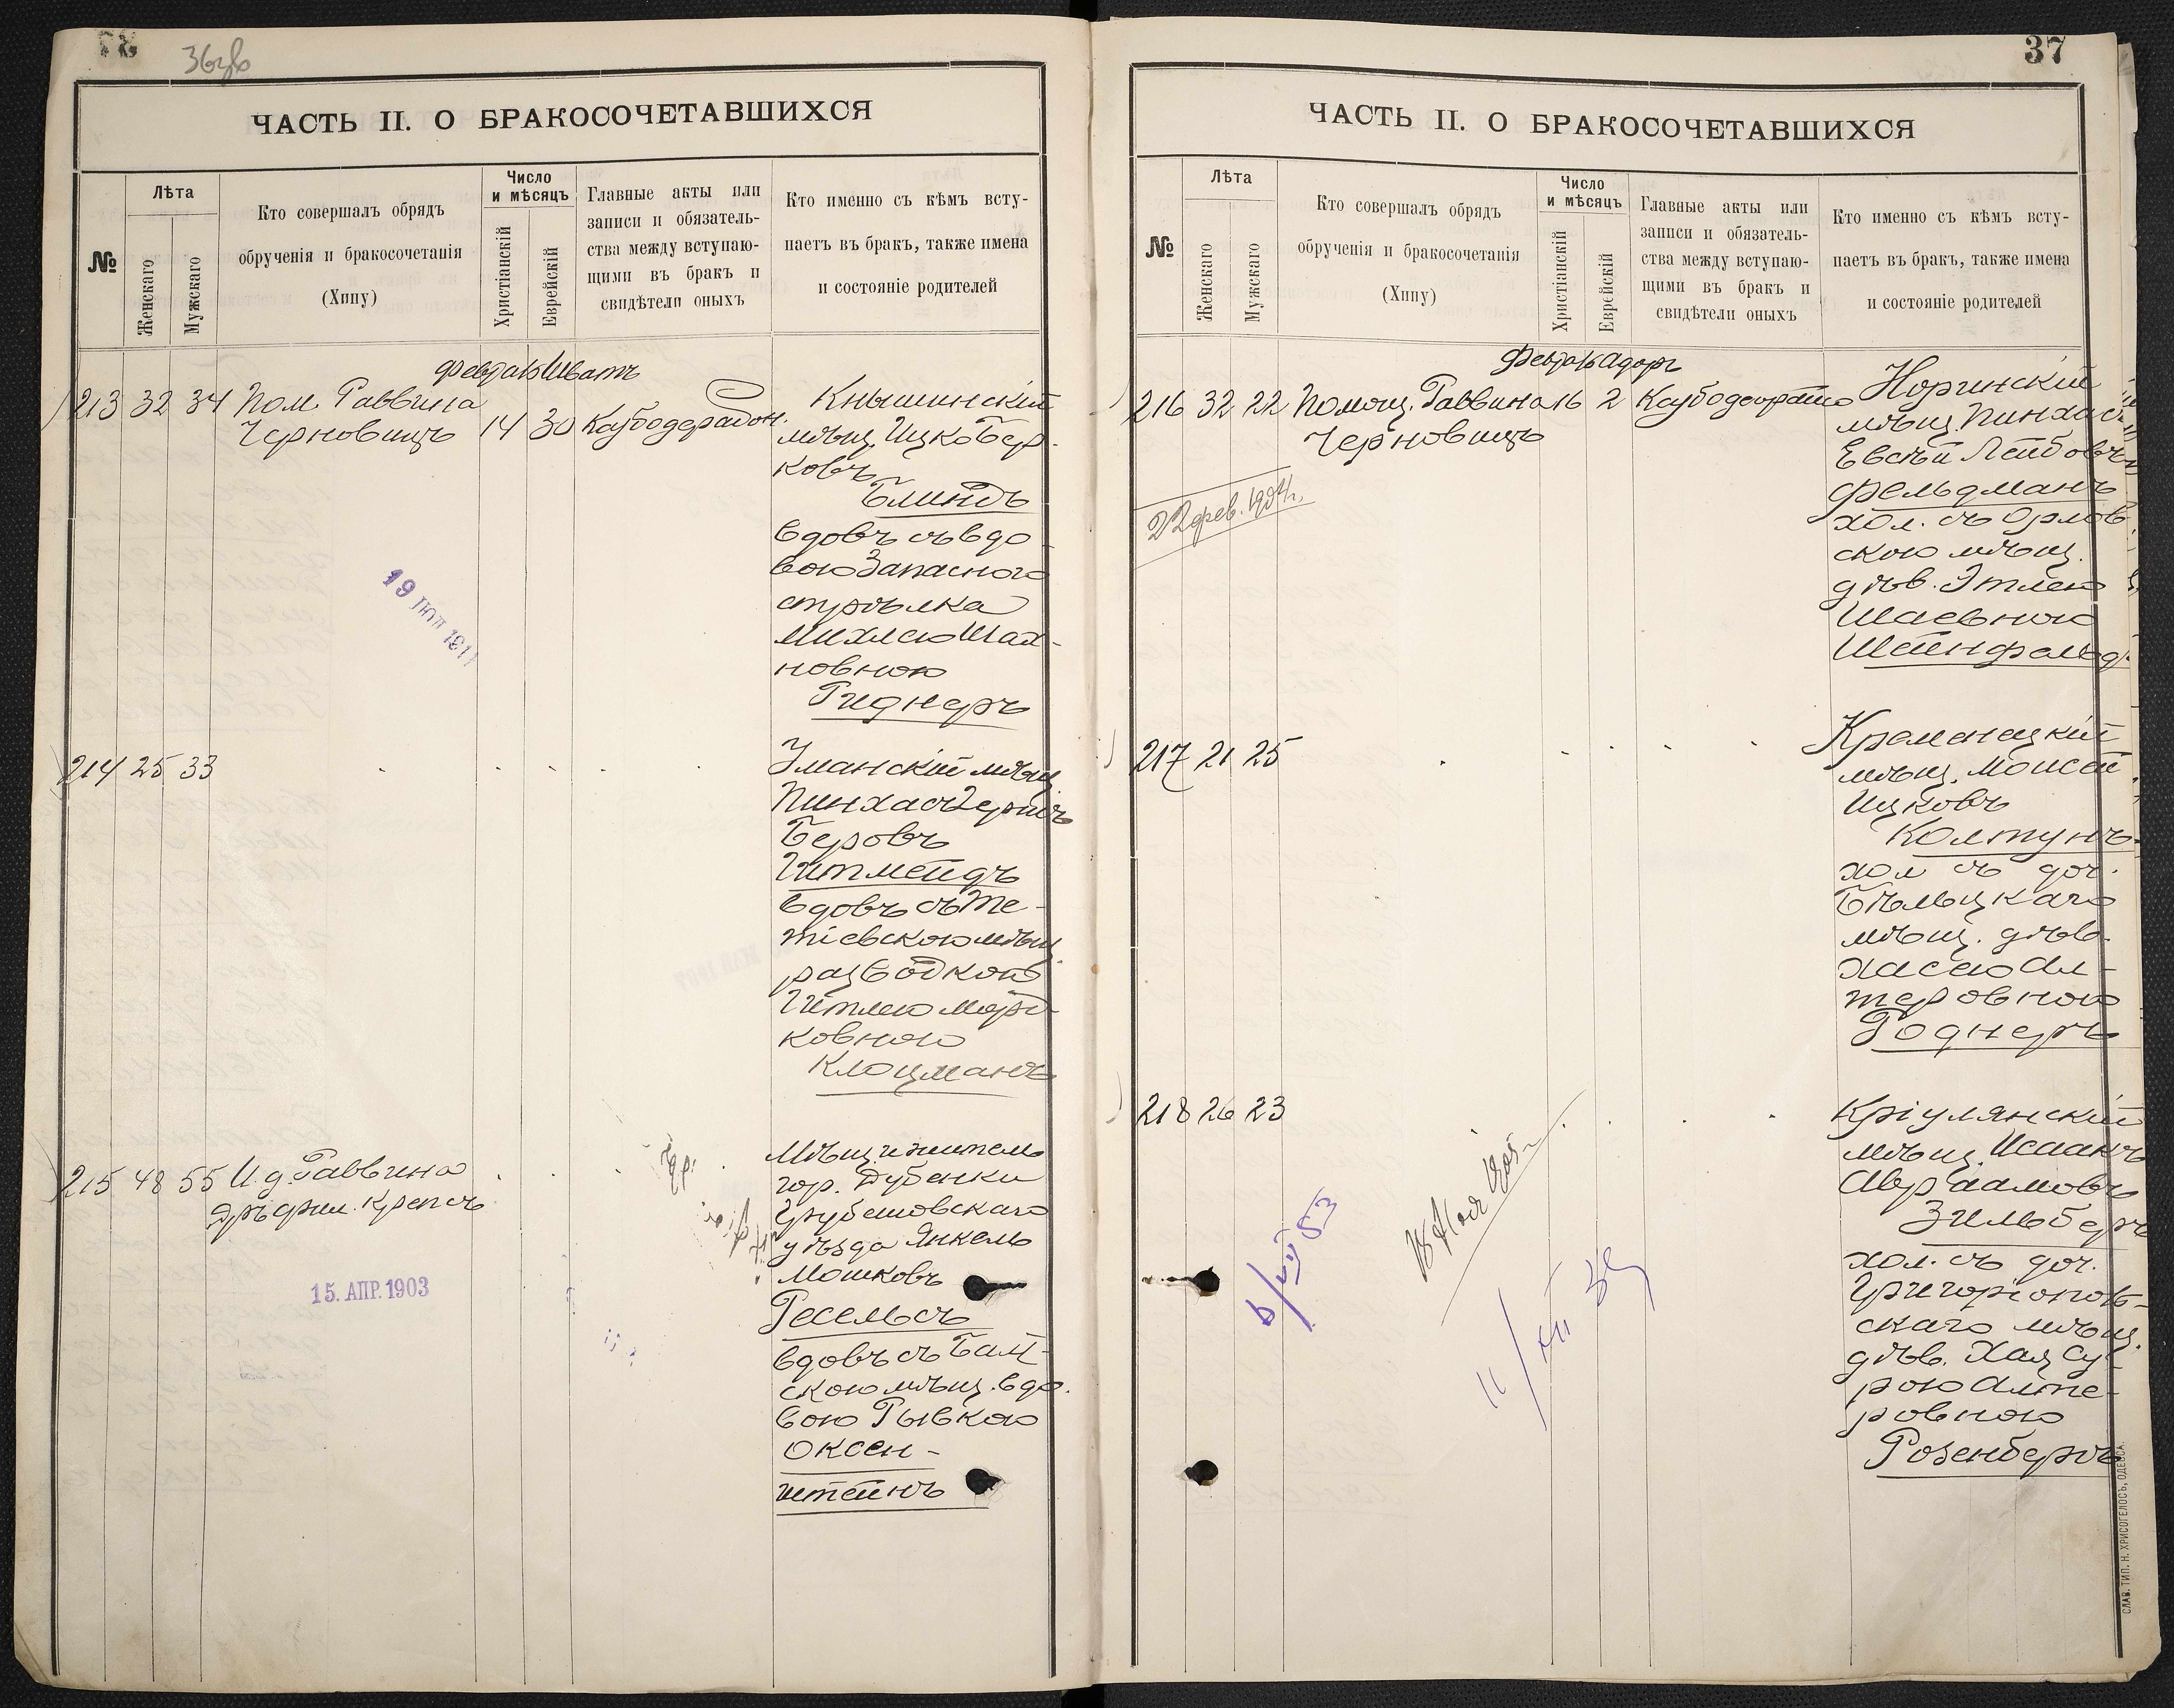 37
36 об
ЧАСТЬ II. О БРАКОСОЧЕТАВШИХСЯ
№
Лѣта
Женскаго
Мужскаго
Кто совершалъ обрядъ
обрученія и бракосочетанія
(Хипу)
Число
и мѣсяцъ
Христіанскій
Еврейскій
Главные акты или
записи и обязатель-
ства между вступаю-
щими въ бракъ и
свидѣтели оныхъ
Кто именно съ кѣмъ всту-
паетъ въ бракъ, также имена
и состояніе родителей
Февраль Шватъ
213 32 34 Пом. Раввина
Черновицъ
14 30
Кнышинскій
мѣщ. Ицко Бер-
ковъ
Блиндъ
вдовъ съ вдо-
вою Запасного
стрѣлка
Михлею Шах-
новною
Гиднеръ
19 1911
214 25 33
Уманскій мѣщ.
Пинхасъ Гершъ
Беровъ
Гитмейдъ
вдовъ съ Те-
тіевскою мѣщ.
разводкой
Гитлею Морд-
ковною
Клоцманъ
215 48 55 И. д. Раввина
Дръ фил. Крепсъ
15. АПР. 1903
Мѣщ. и житель
гор. Дубенки
Грубешовскаго
уѣзда Янкель
Мошковъ
Гесельсъ
вдовъ съ Балт-
скою мѣщ. вдо-
вою Рывкою
Оксен-
штейнъ
37
ЧАСТЬ II. О БРАКОСОЧЕТАВШИХСЯ
№
Лѣта
Женскаго
Мужскаго
Кто совершалъ обрядъ
обрученія и бракосочетанія
(Хипу)
Число
и мѣсяцъ
Христіанскій
Еврейскій
Главные акты или
записи и обязатель-
ства между вступаю-
щими въ бракъ и
свидѣтели оныхъ
Кто именно съ кѣмъ всту-
паетъ въ бракъ, также имена
и состояніе родителей
Февраль Адаръ
216 32 22 Помощ. Раввина
Черновицъ
16 2
22 фев. 1904 г.
Норинскій
мѣщ. Пинхасъ
Евсѣй Лейбовъ
Фельдманъ
хол. съ Орлов-
скою мѣщ.
дѣв. Этлею
Шаевною
Штейнфельд
217 21 25
Кременецкій
мѣщ. Мойсей
Ицковъ
Колтунъ
хол съ доч.
Бѣльцкаго
мѣщ. дѣв.
Хасею Ал-
теровною
Годнеръ
218 26 23
Кріулянскій
мѣщ. Исаакъ
Авраамовъ
Зильберъ
хол. съ доч.
Григоріополь-
скаго мѣщ.
дѣв. Хая Су-
рою Алте-
ровною
Розенбергъ
6/VII 53
11/XII 39
СЛАВ. ТИП. Н. ХРИСОГЕЛОСЪ, ОДЕССА.